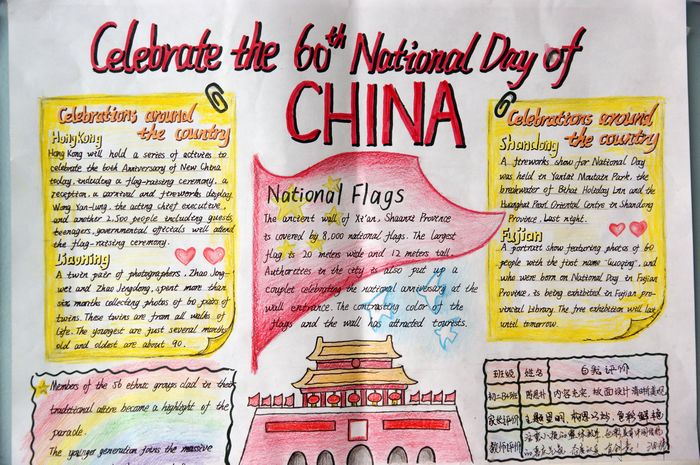 Celebrate the 60th National Day of
CHINA
Celebrations around
the country
HongKong
Hong Kong will hold a series of activies to
celebrate the 60th Anniversary of New China
today, including a flag-raising ceremony, a
reception, a carnival and fireworks display.
Wong Yan-Lung, the acting chief executive,
and another 2,500 people including guests,
teenagers, governmental officials will attend
the flag-raising ceremony.
Liaoning
A twin pair of photographers, Zhao Jong-
wei and Zhao Jengdong, spent more than
six months collecting photos of 60 pairs of
twins. These twins are from all walks of
life. The youngest are just several months
old and oldest are about 90.
National Flags
The ancient wall of Xi'an, Shaanxi Province
is covered by 8,000 national flags. The largest
flag is 20 meters wide and 12 meters tall.
Authorities in the city is also put up a
couplet celebrating the national anniversary at the
wall entrance. The contrasting color of the
flags and the wall has attracted tourists.
Celebrations around
the country
Shandong
A fireworks show for National Day
was held in Yantai Moutain Park, the
breakwater of Bihai Holiday Inn and the
Huanghai Pearl Oriental Centre in Shandong
Province, Last night.
Fujian
A portrait show featuring photos of 60
people with the first name "Guoqing", and
who were born on National Day in Fujian
Province, is being exhibited in Fujian pro-
vincial Library. The free exhibition will last
until tomorrow.
Members of the 56 ethnic groups clad in their
traditional attire became a highlight of the
parade.
The younger generation joins the massive
班级 姓名 自我评价
内容充实，版面设计清晰美观
家长评价 主题鲜明，构思巧妙，色彩鲜艳
教师评价